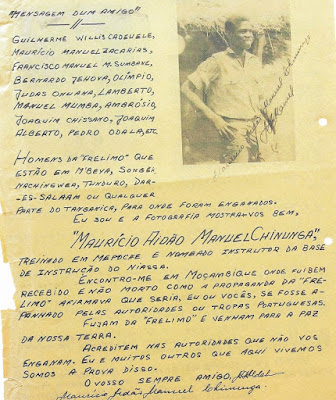 "MENSAGEM DUM AMIGO"
GUILHERME WILLIS CADEUELE,
MAURÍCIO MANUEL ZACARIAS,
FRANCISCO MANUEL M. SUMBANE,
BERNARDO JEHOVA, OLÍMPIO,
JUDAS ONUANA, LAMBERTO,
MANUEL MUMBA, AMBRÓSIO,
JOAQUIM CHISSANO, JOAQUIM
ALBERTO, PEDRO ODALA, ETC.
HOMENS DA "FRELIMO" QUE
ESTÃO EM M'BEYA, SONGEI,
NACHINGWEA, TUNDURO, DAR-
ES-SALAAM OU QUALQUER
PARTE DO TANGANICA, PARA ONDE FORAM ENGANADOS.
EU SOU E A FOTOGRAFIA MOSTRA-VOS BEM,
"MAURÍCIO AIDÃO MANUEL CHINUNGA,"
TREINADO EM MEPOCHE E NOMEADO INSTRUTOR DA BASE
DE INSTRUÇÃO DO NIASSA.
ENCONTRO-ME EM MOÇAMBIQUE ONDE FUI BEM
RECEBIDO E NÃO MORTO COMO A PROPAGANDA DA "FRE-
LIMO" AFIRMAVA QUE SERIA, EU OU VOCÊS, SE FOSSE A-
PANHADO PELAS AUTORIDADES OU TROPAS PORTUGUESAS.
FUJAM DA "FRELIMO" E VENHAM PARA A PAZ
DA NOSSA TERRA.
ACREDITEM NAS AUTORIDADES QUE NÃO VOS
ENGANAM. EU E MUITOS OUTROS QUE AQUI VIVEMOS
SOMOS A PROVA DISSO.
O VOSSO SEMPRE AMIGO,
Maurício Aidão Manuel Chinunga.